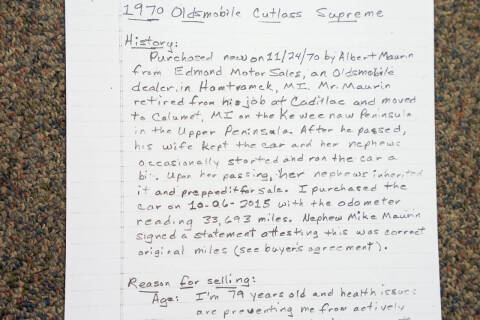 1970 Oldsmobile Cutlass Supreme
History:
Purchased new on 11/24/70 by Albert Maurin
from Edmond Motor Sales, an Oldsmobile
dealer in Hamtramck, MI. Mr. Maurin
retired from his job at Cadillac and moved
to Calumet, MI on the Keweenaw Peninsula
in the Upper Peninsula. After he passed,
his wife kept the car and her nephews
occasionally started and ran the car a
bit. Upon her passing, her nephews inherited
it and prepped it for sale. I purchased the
car on 10-06-2015 with the odometer
reading 33,693 miles. Nephew Mike Maurin
signed a statement attesting this was correct
original miles (see buyer's agreement).
Reason for selling:
Age: I'm 79 years old and health issues
are preventing me from actively